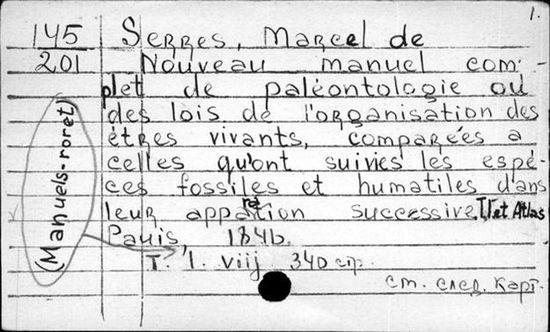 1.
145
201
Serres, Marcel de
Nouveau manuel com-
plet de paléontologie ou
des lois de l'organisation des
êtres vivants, comparées a
celles qu'ont suivies les espé-
ces fossiles et humatiles dans
leur apparetion successive. T.I et Atlas
Pauis, 1846.
T. 1. viij 340 cтр.
(Manuels-roret)
см. след. карт.